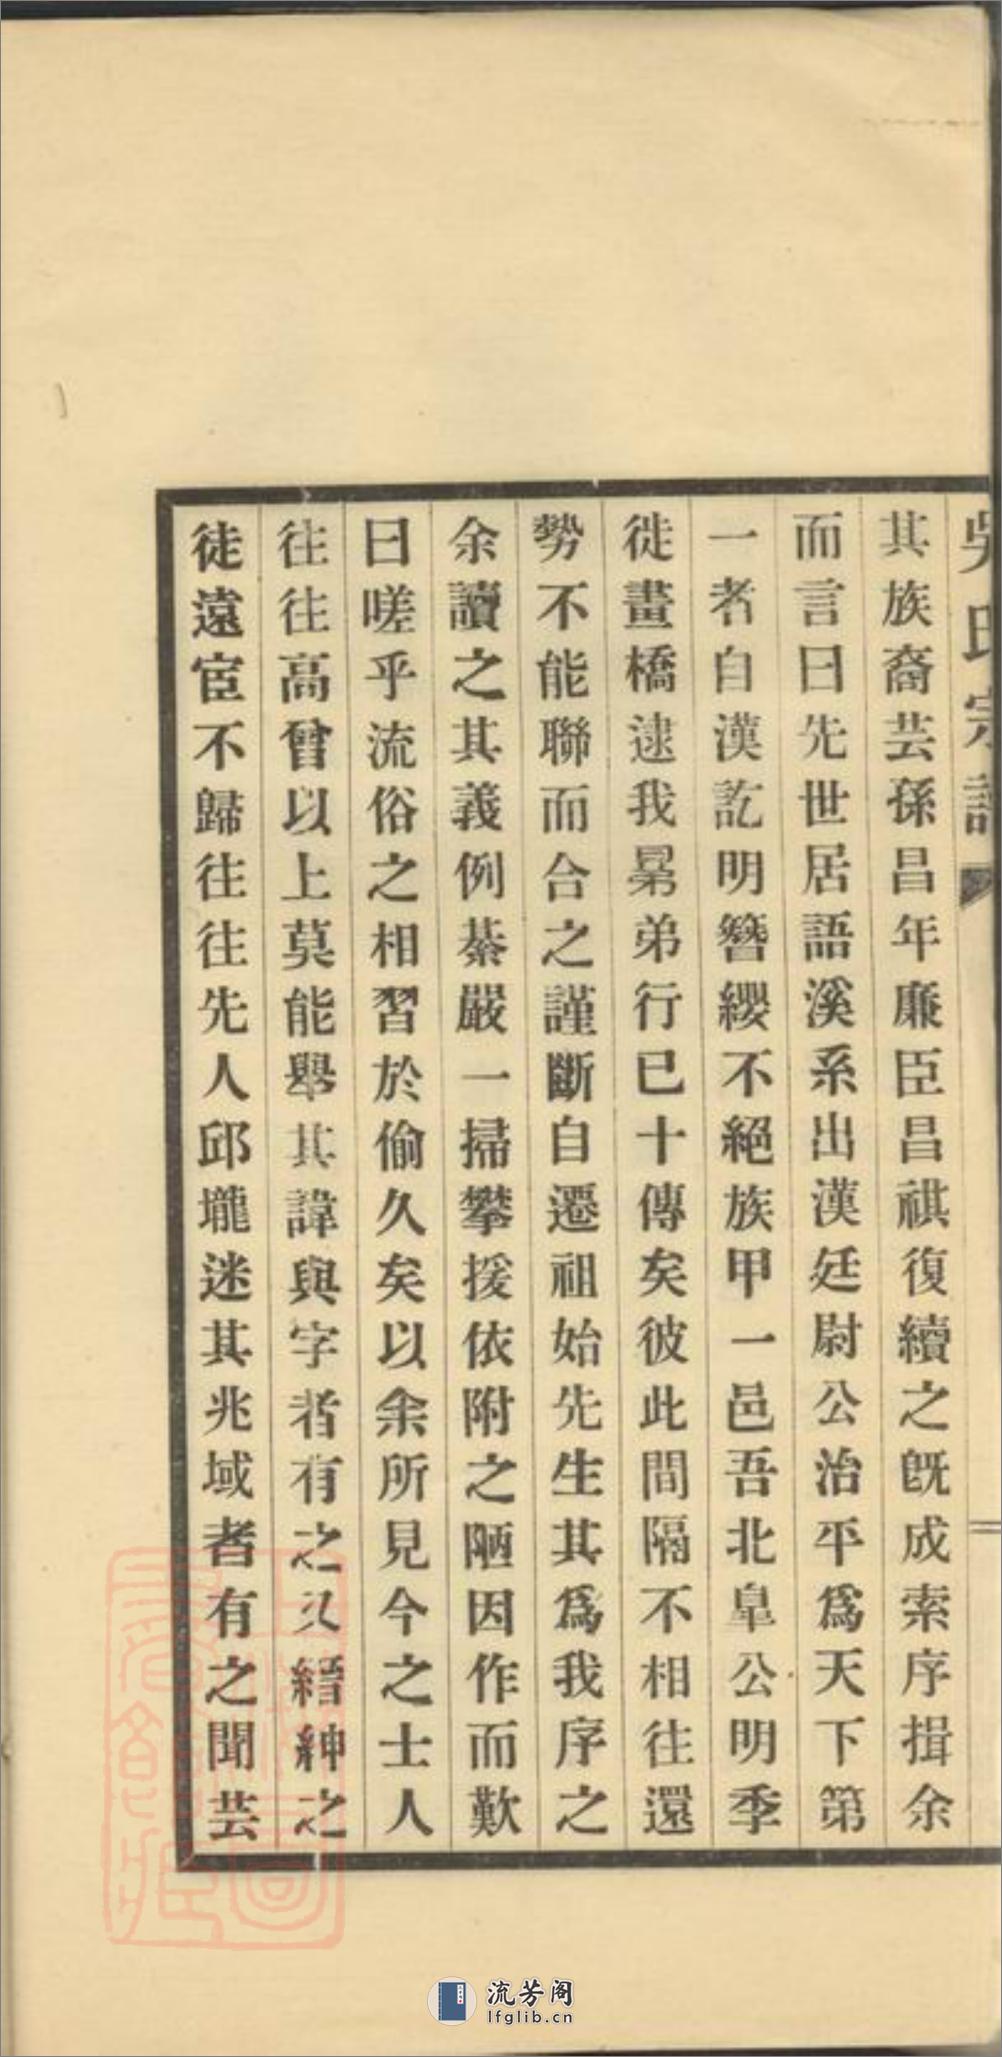 吳氏宗譜
其族裔芸孫昌年廉臣昌祺復續之旣成索序揖余
而言曰先世居語溪系出漢廷尉公治平爲天下第
一者自漢訖明簪纓不絕族甲一邑吾北臯公明季
徙畫橋逮我晜弟行已十傳矣彼此間隔不相往還
勢不能聯而合之謹斷自遷祖始先生其爲我序之
余讀之其義例綦嚴一掃攀援依附之陋因作而歎
曰嗟乎流俗之相習於偷久矣以余所見今之士人
往往高曾以上莫能舉其諱與字者有之又縉紳之
徒遠宦不歸往往先人邱壠迷其兆域者有之聞芸
二
流芳阁
lfglib.cn